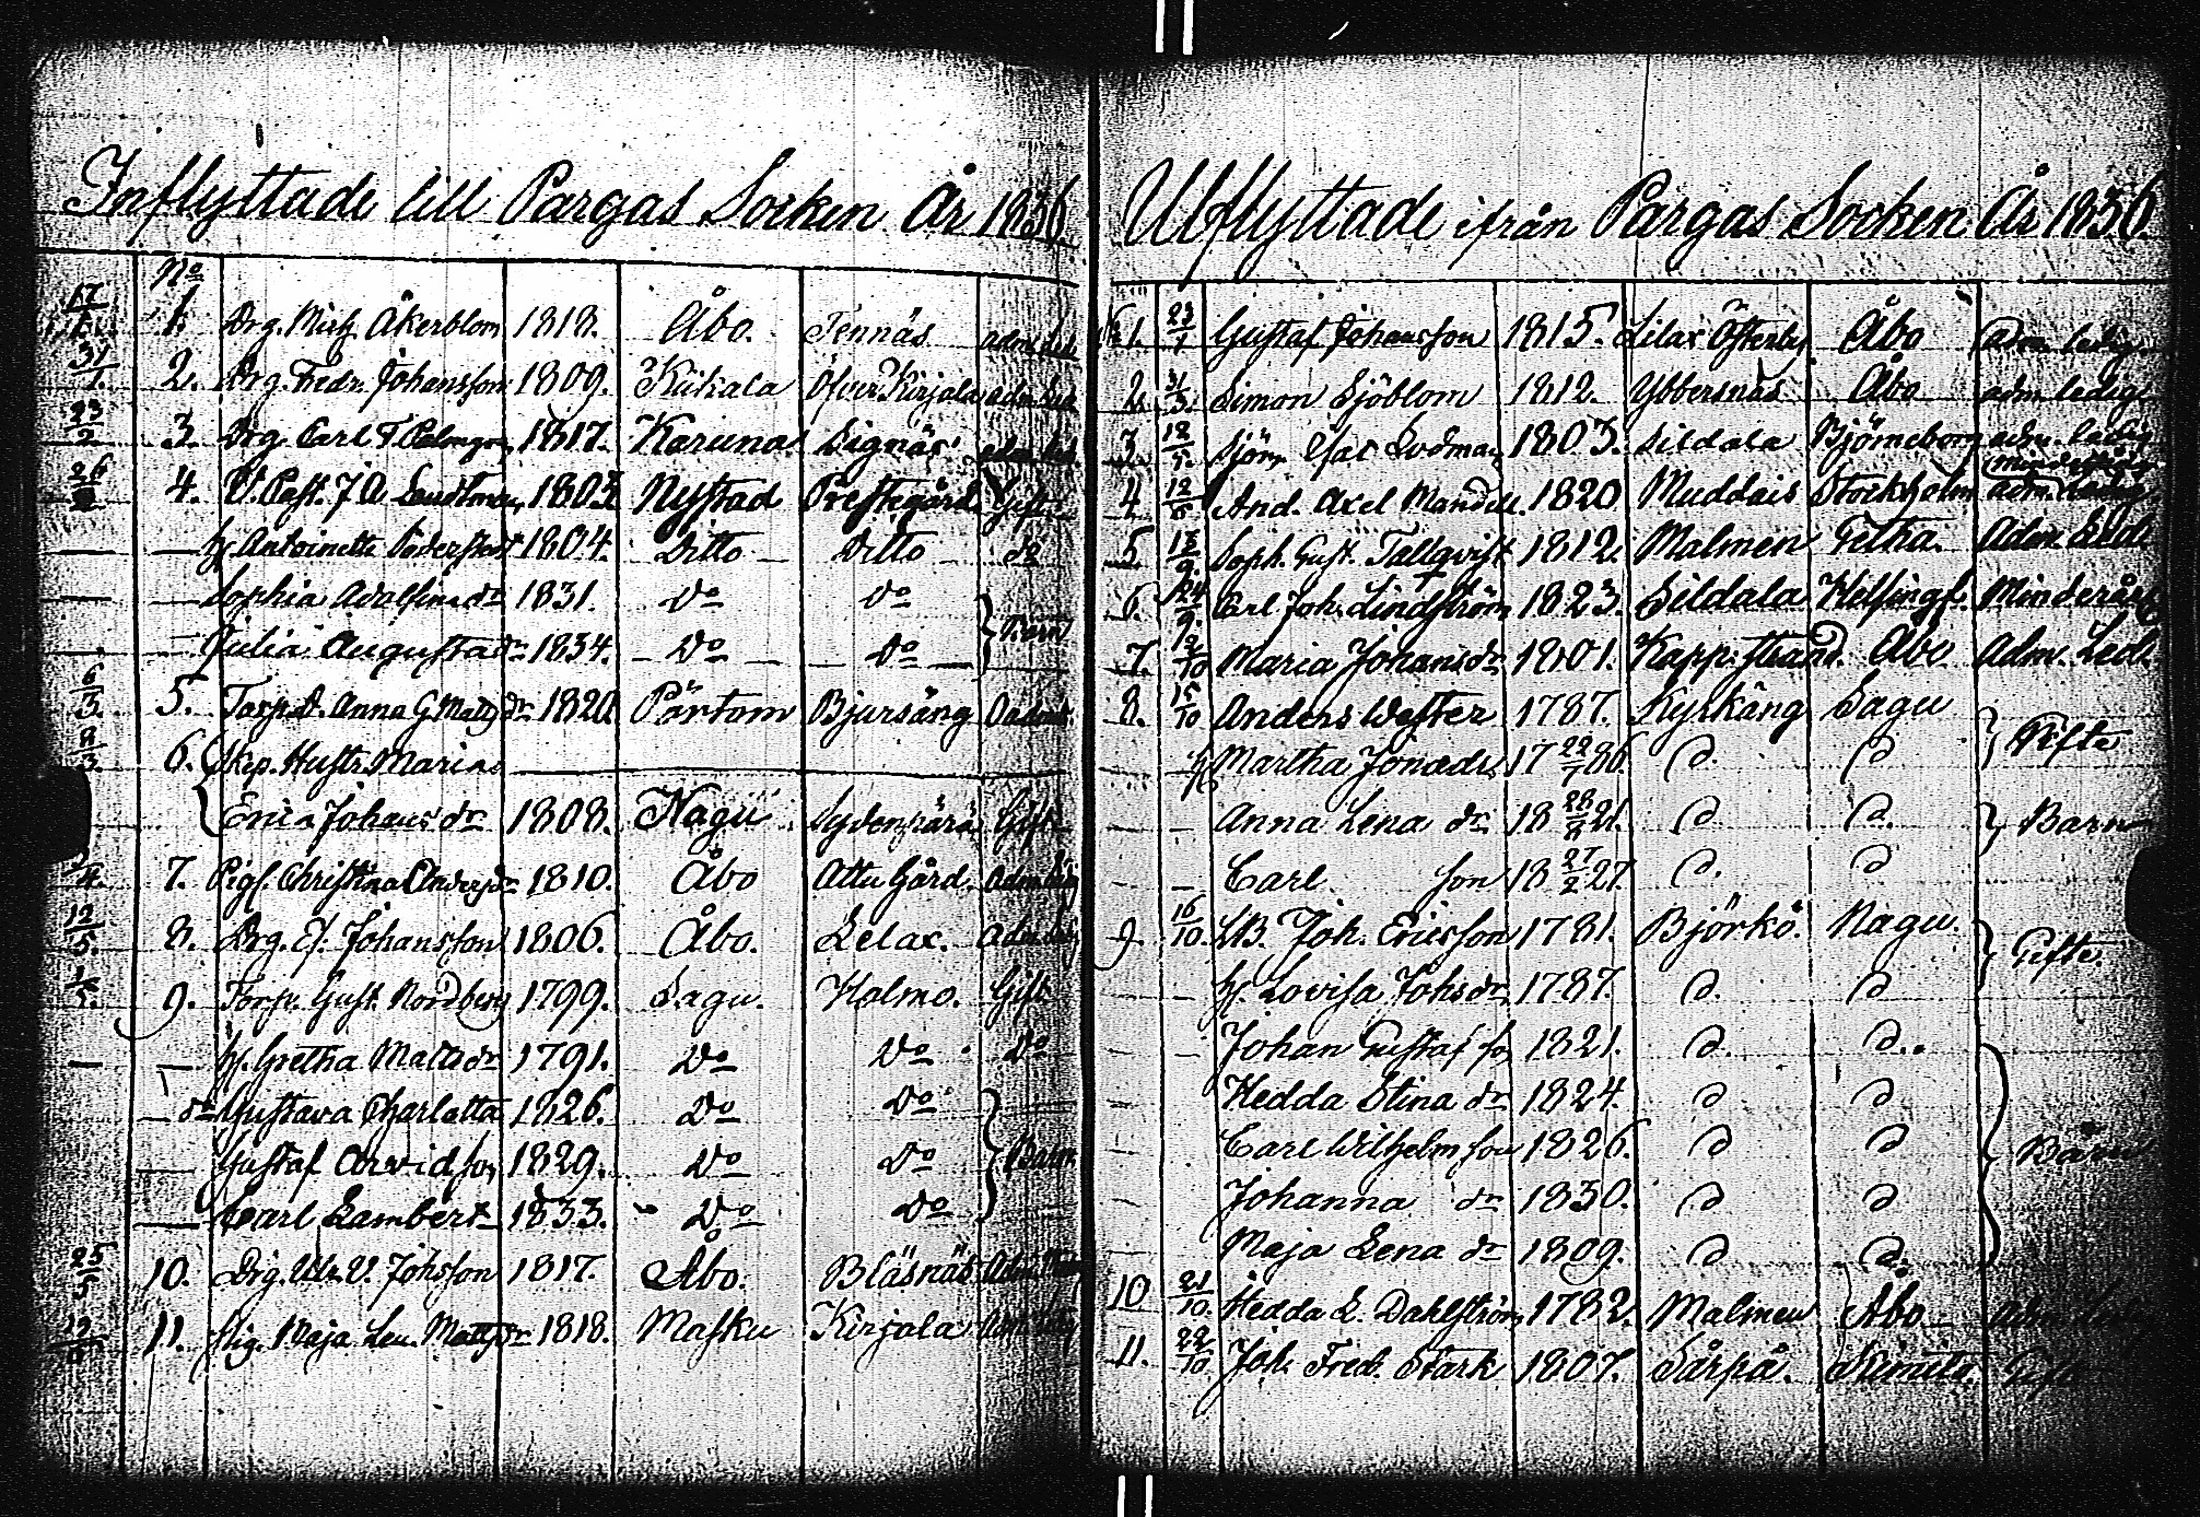 Inflyttade till Pargas Socken År 1836
No
17/1. 1. Drg. Mich Åkerblom 1818. Åbo. Tennäs adm. led.
31/1. 2. Drg. Fredr. Johansson 1809. Kiikala Öfver Kirjala adm. led.
23/2 3. Drg. Carl F. 1817. Karuna. Signäs adm. led.
26 4. V. Past. J A 1803 Nystad Prestegård Gift
— — h. Antoinette 1804. Ditto Ditto do
— — Sophia Adolfina dr 1831. Do Do
— Julia Augusta dr 1834. Do Do } Barn
6/3. 5. Torp.d. Anna G. Matsdr 1820. Pörtom Bjursäng
8/3. 6. { Skep. Hustr. Maria
Erica Johans dr 1808. Nagu Gift
/4. 7. Pig. Christina Andersdr 1810. Åbo Attu Gård. Adm led
12/5. 8. Drg. Johansson 1806. Åbo. Lelax. Adm led
1/5. 9. Torp. Gust. Nordberg 1799. Sagu. Holmo. Gift
— — h. Gretha Matts dr 1791. Do Do Do
— dr Gustava Charlotta 1826. Do Do
— Gustaf Arvid son 1829. Do Do } Barn
— Carl Lambert 1833. Do Do
25/5 10. Drg. V. Johsson 1817. Åbo. Bläsnäs
19 11. Pig. Maja Len. Mattsdr 1818. Masku Kirjala
Utflyttade ifrån Pargas Socken År 1836.
No 1. 23/1 Gustaf Johansson 1815. Lilax Österby Åbo adm. ledig
2. 31/3. Simon Sjöblom 1812. Ybbersnäs Åbo adm. ledig
3. 12/5. Sjöm. Isac Sodman 1803. Sildala Björneborg adm. ledig
4. 12/5 And. Axel Mandell. 1820 Muddais Stockholm
5. 13/9. Soph. Gust. Tallqvist 1812. Malmen Adm. Led
6. 24/9. Carl Joh. Lindström 1823. Sildala Helsingf. Minderårig
7. 12/10 Maria Johansdr 1801. Kapp. strand. Åbo Adm. Led.
8. 15/10 Anders Wester 1787. Kyrkäng Sagu
h. Martha Jonædr 17 22/7 86. d. d } Gifte
— — Anna Lena dr 18 28/8 21. d d. } Barn
— — Carl son 18 27/2 27. d. d
9. 16/10. LB. Joh. Ericsson 1781. Björkö. Nagu.
— h. Lovisa Johs dr 1787. d. d } Gifte.
— — Johan Gustaf so 1821. d. d..
— Hedda Stina dr 1824. d d
— Carl Wilhelm son 1826. d d } Barn
— Johanna dr 1830. d d
Maja Lena dr 1809. d d.
10 21/10. Hedda L. Dahlström 1782. Malmen Åbo
11. 22/10. Joh. Fred. Stark 1807. Sårpå. Kimito. Gift